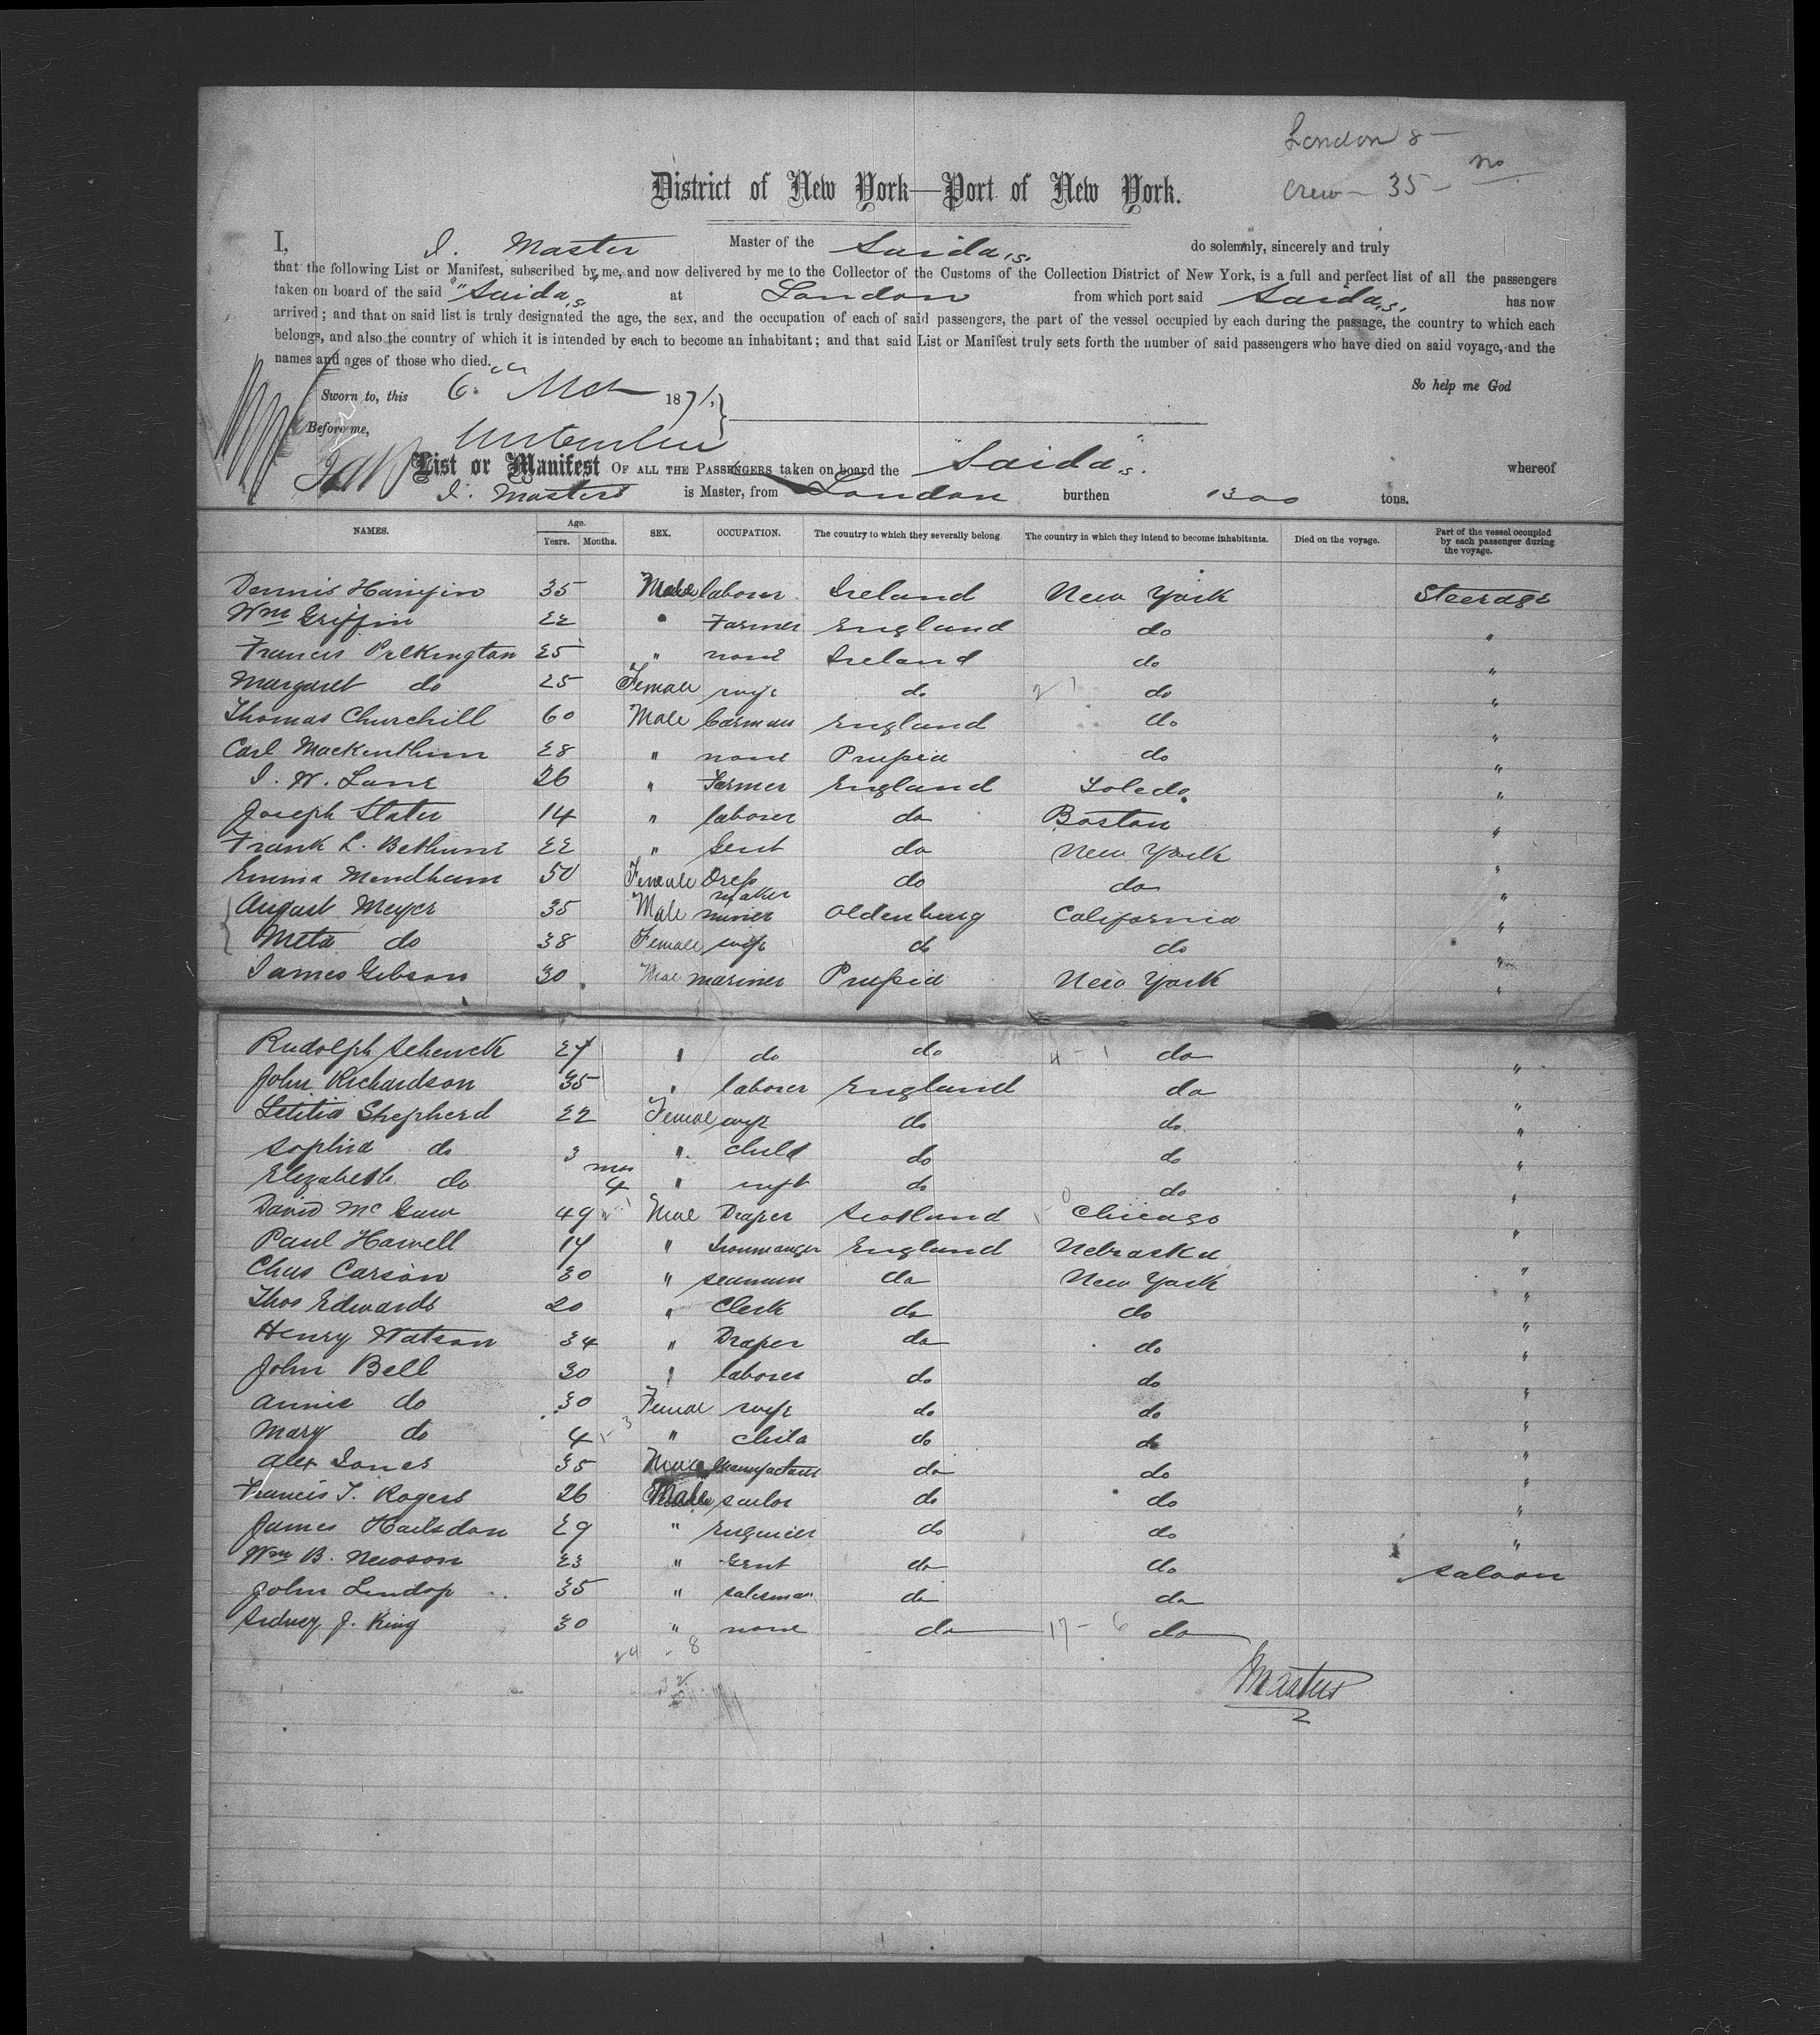 London 8 —
no
Crew — 35 —
District of New York—Port of New York.
I, I. Master Master of the Saida, s. do solemnly, sincerely and truly
that the following List or Manifest, subscribed by me, and now delivered by me to the Collector of the Customs of the Collection District of New York, is a full and perfect list of all the passengers
taken on board of the said "Saida, s" at London from which port said Saida, s, has now
arrived; and that on said list is truly designated the age, the sex, and the occupation of each of said passengers, the part of the vessel occupied by each during the passage, the country to which each
belongs, and also the country of which it is intended by each to become an inhabitant; and that said List or Manifest truly sets forth the number of said passengers who have died on said voyage, and the
names and ages of those who died.
So help me God
Sworn to, this 6. Mch 1871,
Before me,
List or Manifest OF ALL THE PASSENGERS taken on board the "Saida, s". whereof
I. Masters is Master, from London burthen 1300 tons.
NAMES. Age. Years. Months. SEX. OCCUPATION. The country to which they severally belong. The country in which they intend to become inhabitants. Died on the voyage. Part of the vessel occupied by each passenger during the voyage.
Dennis Hanifin 35 Male laborer Ireland New York Steerage
Wm Griffin 22 " Farmer England do "
Francis Pilkington 25 " none Ireland do "
Margaret do 25 Female wife do do "
Thomas Churchill 60 Male Carman England do "
Carl Mackenthun 28 " none Prussia do "
I. W. Lane 26 " Farmer England Toledo "
Joseph Slater 14 " laborer do Boston "
Frank L. Bethune 22 " Gent do New York "
Emma Mendham 50 Female Dress maker do do "
August Meyer 35 Male miner Oldenburg California "
Meta do 38 Female wife do do "
James Gibson 30 Mal mariner Prussia New York "
Rudolph Schenck 27 " do do 4 - 1 do "
John Richardson 35 " laborer England do "
Letitia Shepherd 22 Femal wife do do "
Sophia do 3 " child do do "
Elizabeth do mos 4 " inft do do "
David McGaw 49 Mal Draper Scotland Chicago "
Paul Harvell 17 " Ironmonger England Nebraska "
Chas Carson 30 " seaman do New York "
Thos Edwards 20 " Clerk do do "
Henry Watson 34 " Draper do do "
John Bell 30 " laborer do do "
Annie do 30 Femal wife do do "
Mary do 4 " child do do "
Alex Jones 35 Male manufacturer do do "
Francis T. Rogers 26 Male sailor do do "
James Hailsdon 29 " Engineer do do "
Wm B. Newson 23 " Gent do do Saloon
John Lindop 35 " salesman do do
Sidney J. King 30 " none do 17 - 6 do
24 - 8
32
Masters